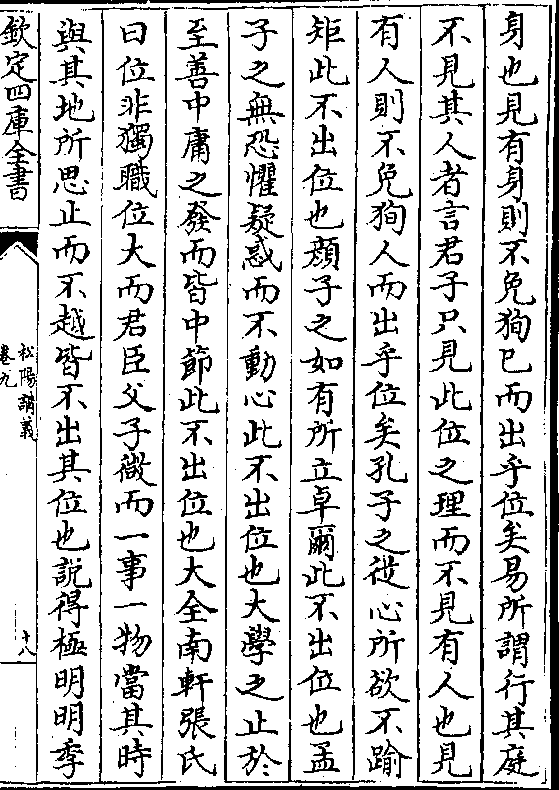 身也見有身則不免狥已而出乎位矣易所謂行其庭
不見其人者言君子只見此位之理而不見有人也見
有人則不免狥人而出乎位矣孔子之從心所欲不踰
矩此不出位也顔子之如有所立卓爾此不出位也孟
子之無恐懼疑惑而不動心此不出位也大學之止於
至善中庸之發而皆中節此不出位也大全南軒張氏
曰位非獨職位大而君臣父子微而一事一物當其時
與其地所思止而不越皆不出其位也說得極明明季
欽定四庫全書
松陽講義
卷九
十八